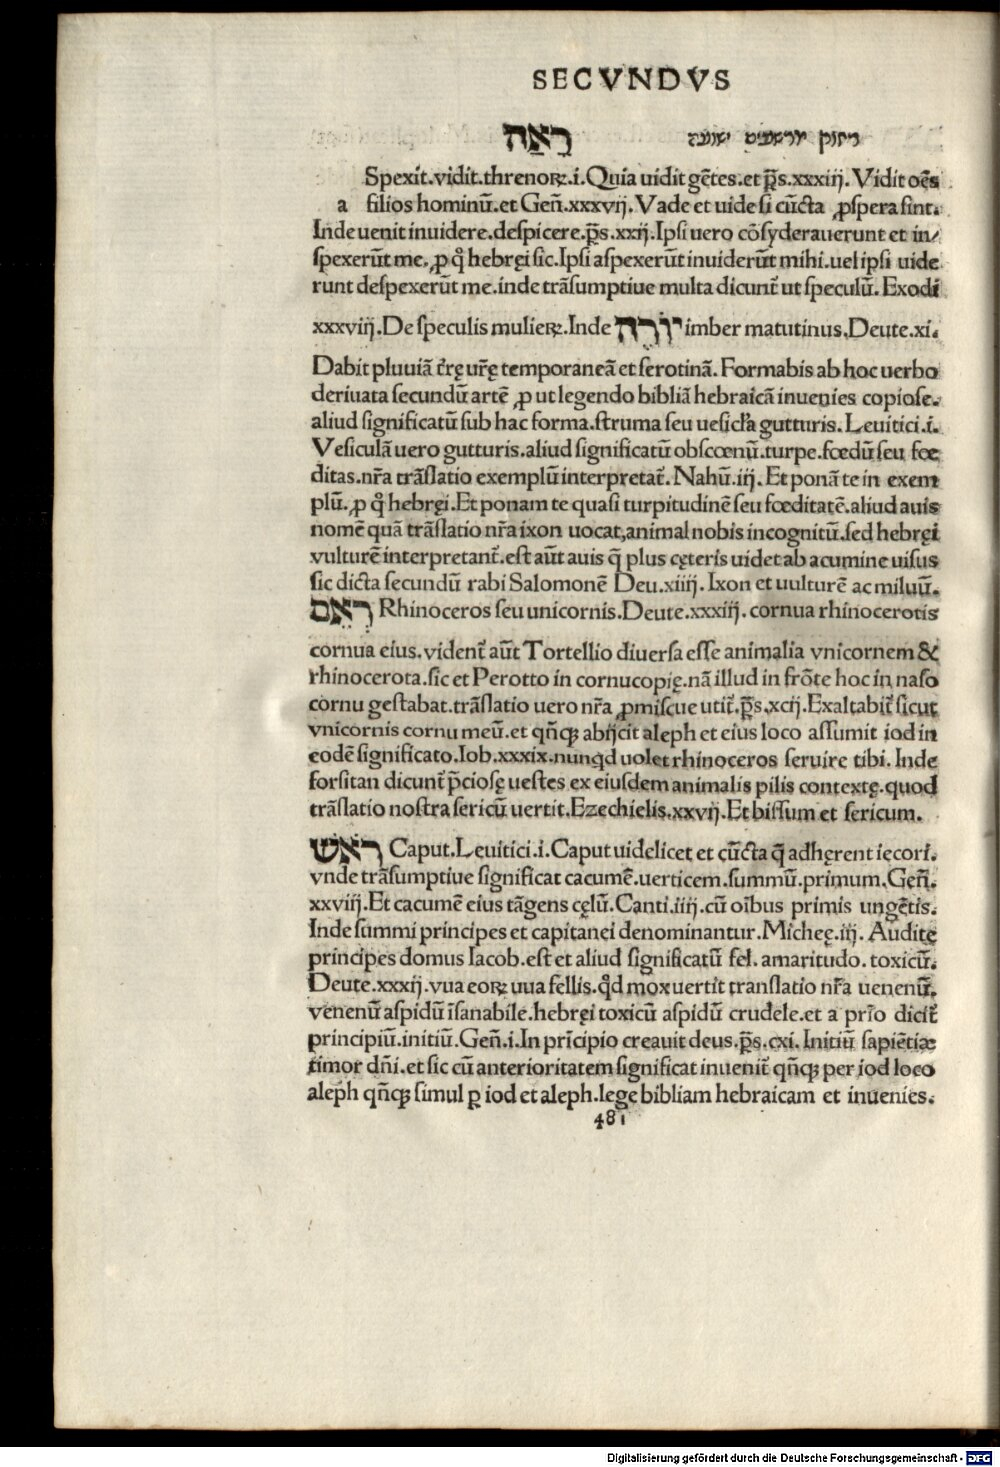 SECVNDVS
רָאָה רחוק מרשעים ישועה
Spexit.vidit.threnoꝝ.i.Quia uidit gẽtes.et p̃s.xxxiij. Vidit oẽs
a filios hominũ.et Geñ.xxxvij. Vade et uide si cũcta ꝓspera sint.
Inde uenit inuidere.despicere.p̃s.xxij.Ipsi uero cõsyderauerunt et in/
spexerũt me. ꝓ q̃ hebręi sic.Ipsi aspexerũt inuiderũt mihi.uel ipsi uide
runt despexerũt me.inde trãsumptiue multa dicunt̃ ut speculũ. Exodi
xxxviij.De speculis mulieꝝ.Inde יוֹרֶה imber matutinus.Deute.xi.
Dabit pluuiã t̃rę ur̃ę temporaneã et serotinã. Formabis ab hoc uerbo
deriuata secundũ artẽ ꝓ ut legendo bibliã hebraicã inuenies copiose.
aliud significatũ sub hac forma.struma seu uesicl̃a gutturis. Leuitici.i.
Vesiculã uero gutturis.aliud significatũ obscœnũ.turpe.fœdũ seu fœ
ditas.nr̃a trãslatio exemplũ interpretat̃. Nahũ.iij. Et ponã te in exem
plũ. ꝓ q̃ hebręi.Et ponam te quasi turpitudinẽ seu fœditatẽ.aliud auis
nomẽ quã trãslatio nr̃a ixon uocat,animal nobis incognitũ.sed hebręi
vulturẽ interpretant̃.est aũt auis q̃ plus cęteris uidet ab acumine uisus
sic dicta secundũ rabi Salomonẽ Deu.xiiij. Ixon et uulturẽ ac miluũ.
רְאֵם Rhinoceros seu unicornis.Deute.xxxiij.cornua rhinocerotis
cornua eius.vident̃ aũt Tortellio diuersa esse animalia vnicornem &
rhinocerota.sic et Perotto in cornucopię.nã illud in frõte hoc in naso
cornu gestabat.trãslatio uero nr̃a ꝓmiscue utit̃.p̃s.xcij.Exaltabit̃ sicut
vnicornis cornu meũ.et qñqꝫ abijcit aleph et eius loco assumit iod in
eodẽ significato.Iob.xxxix.nunq̃d uolet rhinoceros seruire tibi. Inde
forsitan dicunt̃ p̃ciosę uestes ex eiusdem animalis pilis contextę.quod
trãslatio nostra sericũ uertit.Ezechielis.xxvij.Et bissum et sericum.
רֹאשׁ Caput.Leuitici.i.Caput uidelicet et cũcta q̃ adhęrent iecori.
vnde trãsumptiue significat cacumẽ.uerticem.summũ.primum.Geñ.
xxviij.Et cacumẽ eius tãgens cęlũ.Canti.iiij.cũ oĩbus primis ungẽtis.
Inde summi principes et capitanei denominantur.Micheę.iij. Audite
principes domus Iacob.est et aliud significatũ fel. amaritudo. toxicũ.
Deute.xxxij.vua eoꝝ uua fellis.q̃d mox uertit translatio nr̃a uenenũ.
venenũ aspidũ ĩsanabile.hebręi toxicũ aspidũ crudele.et a prĩo dicit̃
principiũ.initiũ.Geñ.i.In prĩcipio creauit deus.p̃s.cxi. Initiũ sapiẽtiæ
timor dñi.et sic cũ anterioritatem significat inuenit̃ qñqꝫ per iod loco
aleph qñqꝫ simul ꝑ iod et aleph.lege bibliam hebraicam et inuenies.
481
Digitalisierung gefördert durch die Deutsche Forschungsgemeinschaft - DFG